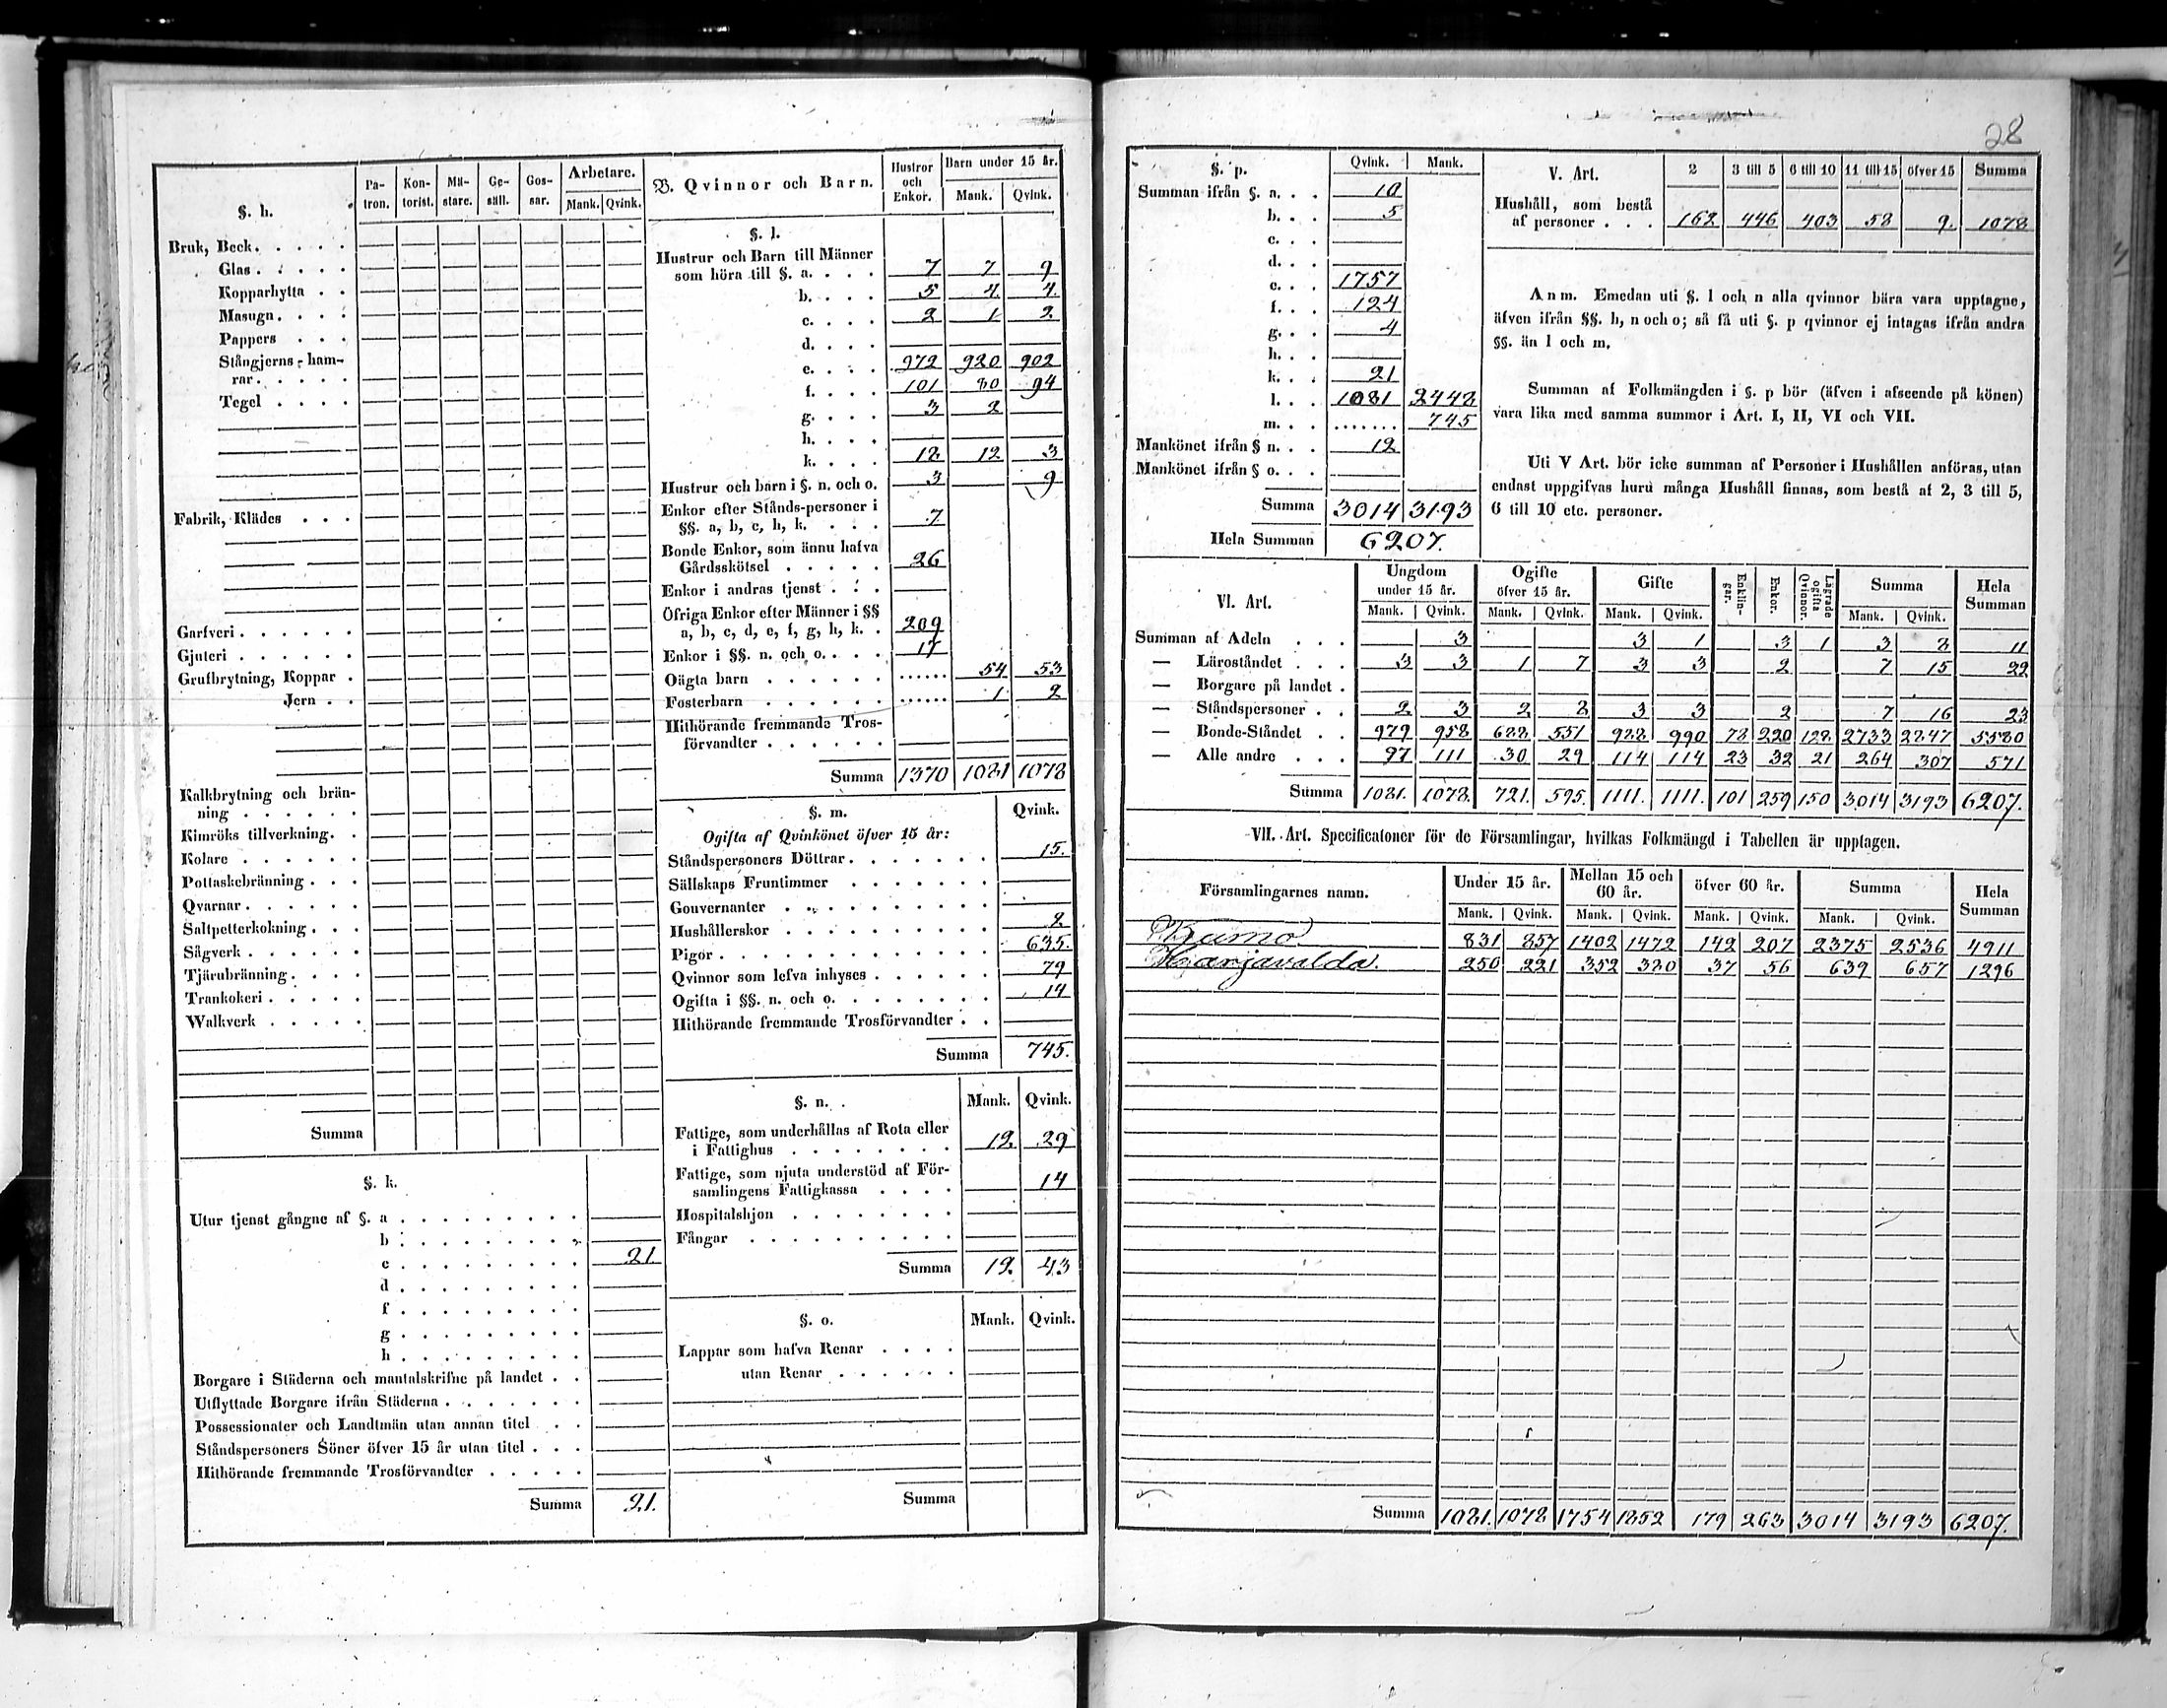 28
§. h. Pa-tron. Kon-torist. Mä-stare. Ge-säll. Gos-sar. Arbetare. Mank. Qvink.
Bruk, Beck. . . . .
Glas. . . . .
Kopparhytta . .
Masugn. . . .
Pappers . . .
Stångjerns-ham-
rar. . . . .
Tegel . . . .
Fabrik, Klädes . . .
Garfveri. . . . . .
Gjuteri . . . . . .
Grufbrytning, Koppar .
Jern . .
Kalkbrytning och brän-
ning . . . . . .
Kimröks tillverkning. .
Kolare . . . . . .
Pottaskebränning . . .
Qvarnar. . . . . .
Saltpetterkokning . . .
Sågverk . . . . . .
Tjärubränning. . . .
Trankokeri . . . . .
Walkverk . . . . .
Summa
§. k.
Utur tjenst gångne af §. a . . . . . . . .
b . . . . . . . .
c . . . . . . . . 21.
d . . . . . . . .
f . . . . . . . .
g . . . . . . . .
h . . . . . . . .
Borgare i Städerna och mantalskrifne på landet . .
Utflyttade Borgare ifrån Städerna . . . . . .
Possessionater och Landtmän utan annan titel . .
Ståndspersoners Söner öfver 15 år utan titel . . .
Hithörande fremmande Trosförvandter . . . . .
Summa 21.
B. Qvinnor och Barn. Hustror och Enkor. Barn under 15 år. Mank. Qvink.
§. l.
Hustrur och Barn till Männer
som höra till §. a. . . . 7 7 9
b. . . . 5 4. 4.
c. . . . 2 1 2
d. . . .
e. . . . 972 920 902
f. . . . 101 80 94
g. . . . 3 2
h. . . .
k. . . . 18 12 3
Hustrur och barn i §. n. och o. 3 9
Enkor efter Stånds-personer i
§§. a, b, c, h, k. . . . 7
Bonde Enkor, som ännu hafva
Gårdsskötsel . . . . . 26
Enkor i andras tjenst . . .
Öfriga Enkor efter Männer i §§
a, b, c, d, e, f, g, h, k. . 209
Enkor i §§. n. och o. . . . 17
Oägta barn . . . . . . ...... 54 53
Fosterbarn . . . . . . ...... 1 2
Hithörande fremmande Tros-
förvandter . . . . . .
Summa 1370 1081 1078
§. m. Qvink.
Ogifta af Qvinkönet öfver 15 år:
Ståndspersoners Döttrar. . . . . . . 15.
Sällskaps Fruntimmer . . . . . . .
Gouvernanter . . . . . . . . .
Hushållerskor . . . . . . . . . 2
Pigor. . . . . . . . . . . . 635.
Qvinnor som lefva inhyses . . . . . . 79
Ogifta i §§. n. och o. . . . . . . . 14
Hithörande fremmande Trosförvandter . .
Summa 745.
§. n. Mank. Qvink.
Fattige, som underhållas af Rota eller
i Fattighus . . . . . . . . 12. 29
Fattige, som njuta understöd af För-
samlingens Fattigkassa . . . . 14
Hospitalshjon . . . . . . . .
Fångar . . . . . . . . . .
Summa 12. 43
§. o. Mank. Qvink.
Lappar som hafva Renar . . . .
utan Renar . . . . . .
Summa
§. p. Qvink. Mank.
Summan ifrån §. a. . . 10
b. . . 5
c. . .
d. . .
e. . . 1757
f. . . 124
g. . . 4
h. . .
k. . . 21
l. . . 1081 2448
m. . . ....... 745
Mankönet ifrån § n. . . 12
Mankönet ifrån § o. . .
Summa 3014 3193
Hela Summan 6207.
V. Art. 2 3 till 5 6 till 10 11 till 15 öfver 15 Summa
Hushåll, som bestå
af personer . . . 162 446 403 58 9. 1078
Anm. Emedan uti §. l och n alla qvinnor bära vara upptagne,
äfven ifrån §§. h, n och o; så få uti §. p qvinnor ej intagas ifrån andra
§§. än l och m.
Summan af Folkmängden i §. p bör (äfven i afseende på könen)
vara lika med samma summor i Art. I, II, VI och VII.
Uti V Art. bör icke summan af Personer i Hushållen anföras, utan
endast uppgifvas huru många Hushåll finnas, som bestå af 2, 3 till 5,
6 till 10 etc. personer.
VI. Art. Ungdom under 15 år. Ogifte öfver 15 år. Gifte Enklin-gar. Enkor. Lägrade ogifta Qvinnor. Summa Hela Summan
Mank. Qvink. Mank. Qvink. Mank. Qvink. Mank. Qvink.
Summan af Adeln . . . 3 3 1 3 1 3 8 11
— Läroståndet . . . 3 3 1 7 3 3 2 7 15 22
— Borgare på landet .
— Ståndspersoner . . 2 3 2 8 3 3 2 7 16 23
— Bonde-Ståndet . . 979 958 688 551 988 990 78 220 128 2733 2847 5580
— Alle andre . . . 97 111 30 29 114 114 23 32 21 264 307 571
Summa 1081. 1078. 721. 595. 1111. 1111. 101 259 150 3014 3193 6207.
VII. Art. Specificationer för de Församlingar, hvilkas Folkmängd i Tabellen är upptagen.
Församlingarnes namn. Under 15 år. Mellan 15 och 60 år. öfver 60 år. Summa Hela Summan
Mank. Qvink. Mank. Qvink. Mank. Qvink. Mank. Qvink.
Kumo 831 857 1402 1472 142 207 2375 2536 4911
Harjavalda. 250 221 352 380 37 56 639 657 1296
Summa 1081. 1078 1754 1852 179 263 3014 3193 6207.